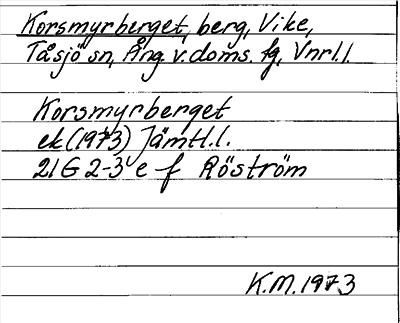 Korsmyrberget, berg, Vike,
Tåsjö sn, Ång. v. doms. fg, Vnrl. l.
Korsmyrberget
ek (1973) Jämtl. l.
21 G 2-3 e f Röström
K.M. 1973